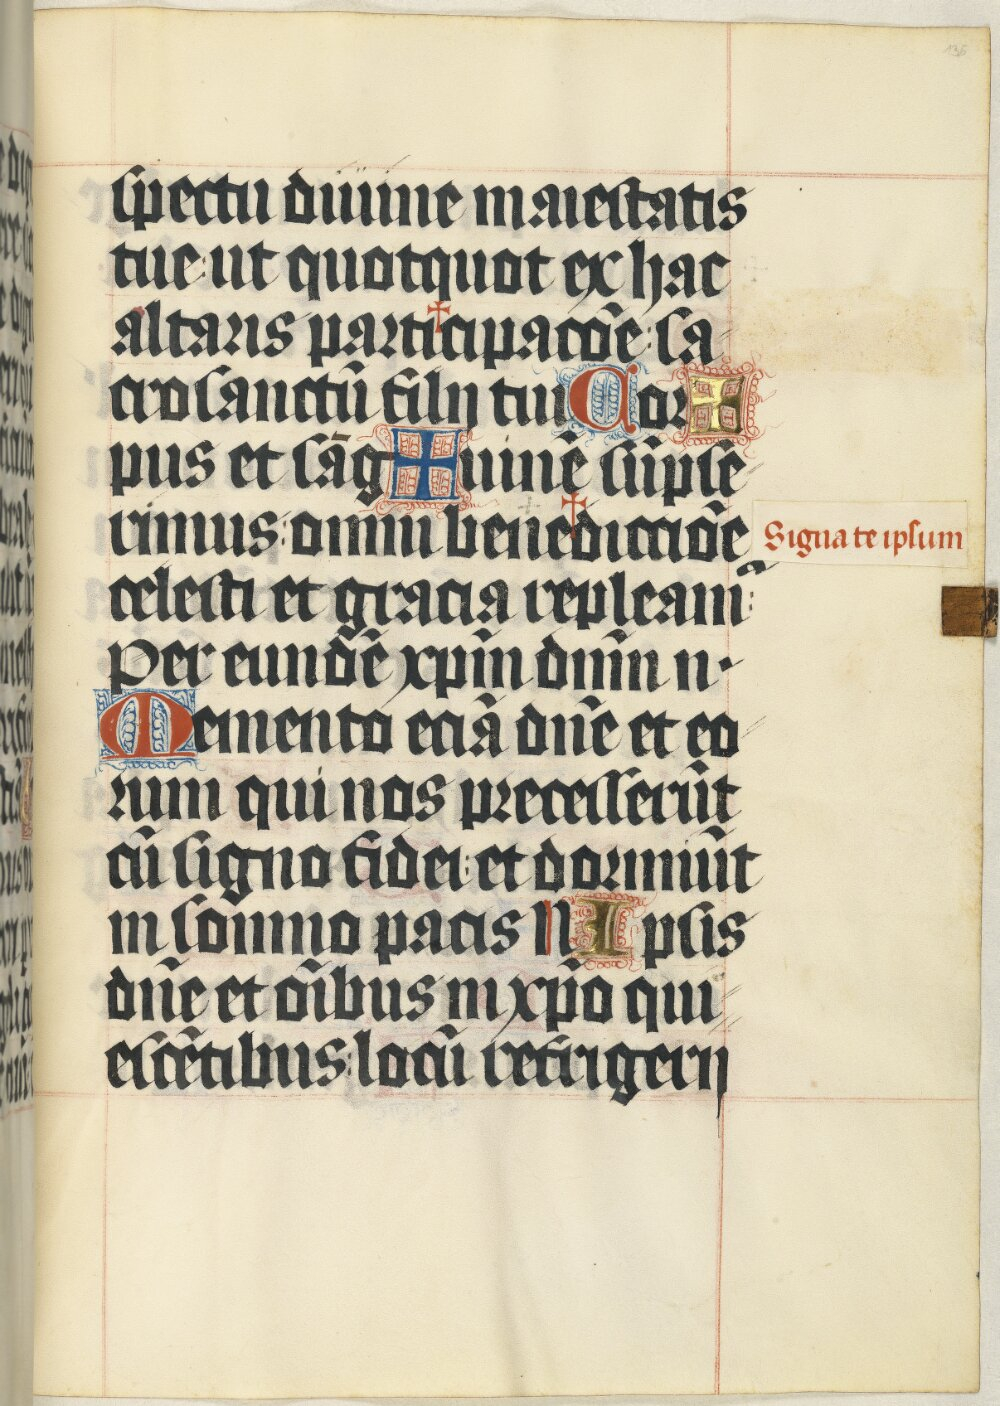 136
spectu diuine maiestatis
tue: ut quotquot ex hac
altaris parti✝cipacōe: sa
crosanctū filij tui Cor✠
pus et sāg✠uinē sūpse
rimus: omni bene✝diccōe
Signa te ipsum
celesti et gracia repleam᷒:
Per eundē xp̄m dn̄m n·
Memento eciā dn̄e et eo
rum qui nos precesserūt
cū signo fidei: et dormiūt
in somno pacis N Ipsis
dn̄e et oībus in xp̄o qui
escētibus: locū refrigerij